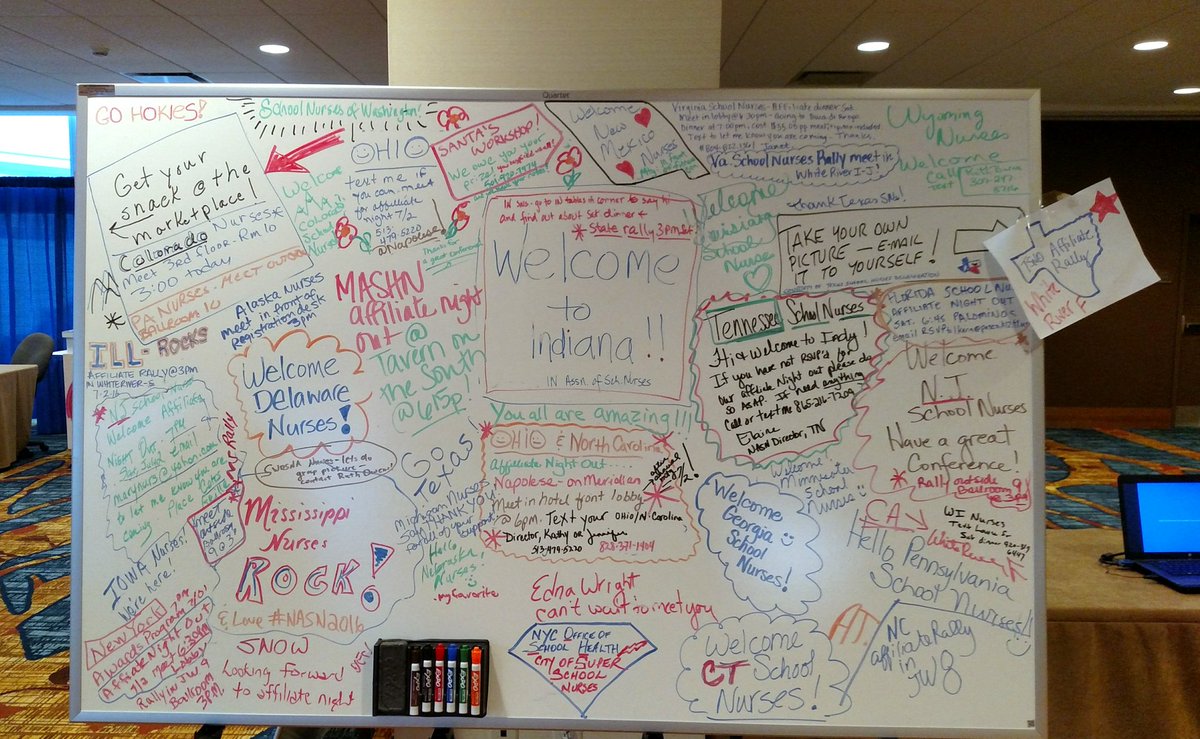 Quartet
GO HOKIES!
School Nurses of Washington!
Get your
snack @ the
marketplace!
Colorado Nurses*
Meet 3rd floor-Rm 10
3:00 today
PA NURSES - MEET OUTSIDE
BALLROOM 10
Welcome
Colorado
School
Nurses
OHIO
text me if
you can meet
for affiliate
night 7/2
513
479-5220
@Napolese!
SANTA'S
WORKSHOP!
We owe you your
prize!
Thanks for
a great conference!
Welcome
New
Mexico
Nurses
Virginia School Nurses - Affiliate dinner Sat.
Meet in lobby @ 6:30pm - going to Buca di Beppo
Dinner at 7:00pm, cost $35.00 pp meal, tip + tax included.
Text to let me know you are coming. Thanks.
Janet
Va. School Nurses Rally meet in
White River I-J
Wyoming
Nurses
Welcome
Call
Text
Thank Texas SNs!
Welcome
Louisiana
School
Nurses
IN SNs - go to IN tables in corner to say hi
and find out about Sat dinner &
* State rally 3pm Sat!!
Welcome
to
indiana!!
IN Assn. of Sch. Nurses
TAKE YOUR OWN
PICTURE — E-MAIL
IT TO YOURSELF!
COURTESY OF TEXAS SCHOOL NURSES ORGANIZATION
TSNO Affiliate
Rally
White
River F
Alaska Nurses
meet in front of
Registration desk
3pm
MASHN
affiliate night
out
@
Tavern on
the South
@ 615p
ILL- ROCKS
AFFILIATE RALLY @ 3PM
IN WHITERIVER-E
7-2-16
Welcome
Delaware
Nurses!
Tennessee School Nurses
Hi & Welcome to Indy!
If you have not RSVP'd for
our affiliate Night out please do
so ASAP. If need anything
Call or text me 865-216-7209
Elaine
NASN Director, TN
FLORIDA SCHOOL NU
AFFILIATE NIGHT OUT
SAT. 6:45 PALOMINOS
Welcome
N.J.
School Nurses
Have a great
Conference!
Rally outside
Ballroom 9
@ 3pm
* NJ school nurses
Welcome Affiliate
Night Out
Sat July 2nd 7PM
Email:
to let me know if you are
coming
NJ Rally
meet
outside
Ballroom
9 @ 3
You all are amazing!!!
OHIO & North Carolina
Affiliate Night Out....
Napolese - on Meridian
Meet in hotel front lobby
@ 6pm. Text your Ohio/N. Carolina
Director, Kathy or Jennifer
513-479-5220 828-371-1404
7/2!
Go
Texas
SWOSNA Nurses - lets do
group picture -
contact Ruth
Mississippi
Nurses
ROCK!
& Love #NASN2016
Michigan Nurses
say THANK YOU
for all of your support
Hello
Nebraska
Nurses!
- my favorite
Welcome
Minnesota
School
Nurses
Welcome
Georgia
School
Nurses!
CA
White River
WI Nurses
Text
Sat dinner
Hello Pennsylvania
School Nurses!!
IOWA Nurses!
We're
here!
New York!
Awards Program
Affiliate Night Out
7/2 meet 6:30pm
Lobby
Rally in JW 9
Ballroom
3PM!
SNOW
Looking forward
to affiliate night
Edna Wright
can't wait to meet you
NYC OFFICE OF
SCHOOL HEALTH
CITY OF SUPER
SCHOOL
NURSES
Welcome
CT School
Nurses!
NC
affiliate Rally
in
JW 8
EXPO
EXPO
EXPO
EXPO
EXPO
EXPO